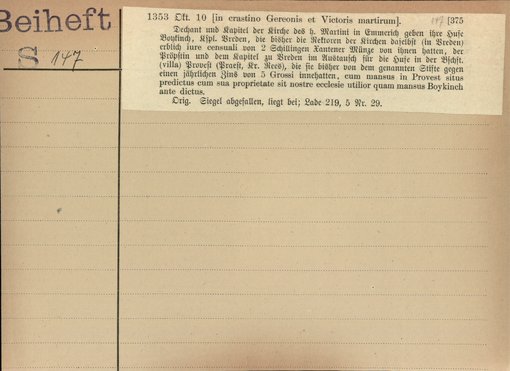 Beiheft
S 147
1353 Okt. 10 [in crastino Gereonis et Victoris martirum]. 147 [375
Dechant und Kapitel der Kirche des h. Martini in Emmerich geben ihre Hufe
Boykinch, Kspl. Vreden, die bisher die Rektoren der Kirchen daselbst (in Vreden)
erblich iure censuali von 2 Schillingen Xantener Münze von ihnen hatten, der
Pröpstin und dem Kapitel zu Vreden im Austausch für die Hufe in der Bschft.
(villa) Provest (Praest, Kr. Rees), die sie bisher von dem genannten Stifte gegen
einen jährlichen Zins von 5 Grossi innehatten, cum mansus in Provest situs
predictus cum sua proprietate sit nostre ecclesie utilior quam mansus Boykinch
ante dictus.
Orig. Siegel abgefallen, liegt bei; Lade 219, 5 Nr. 29.